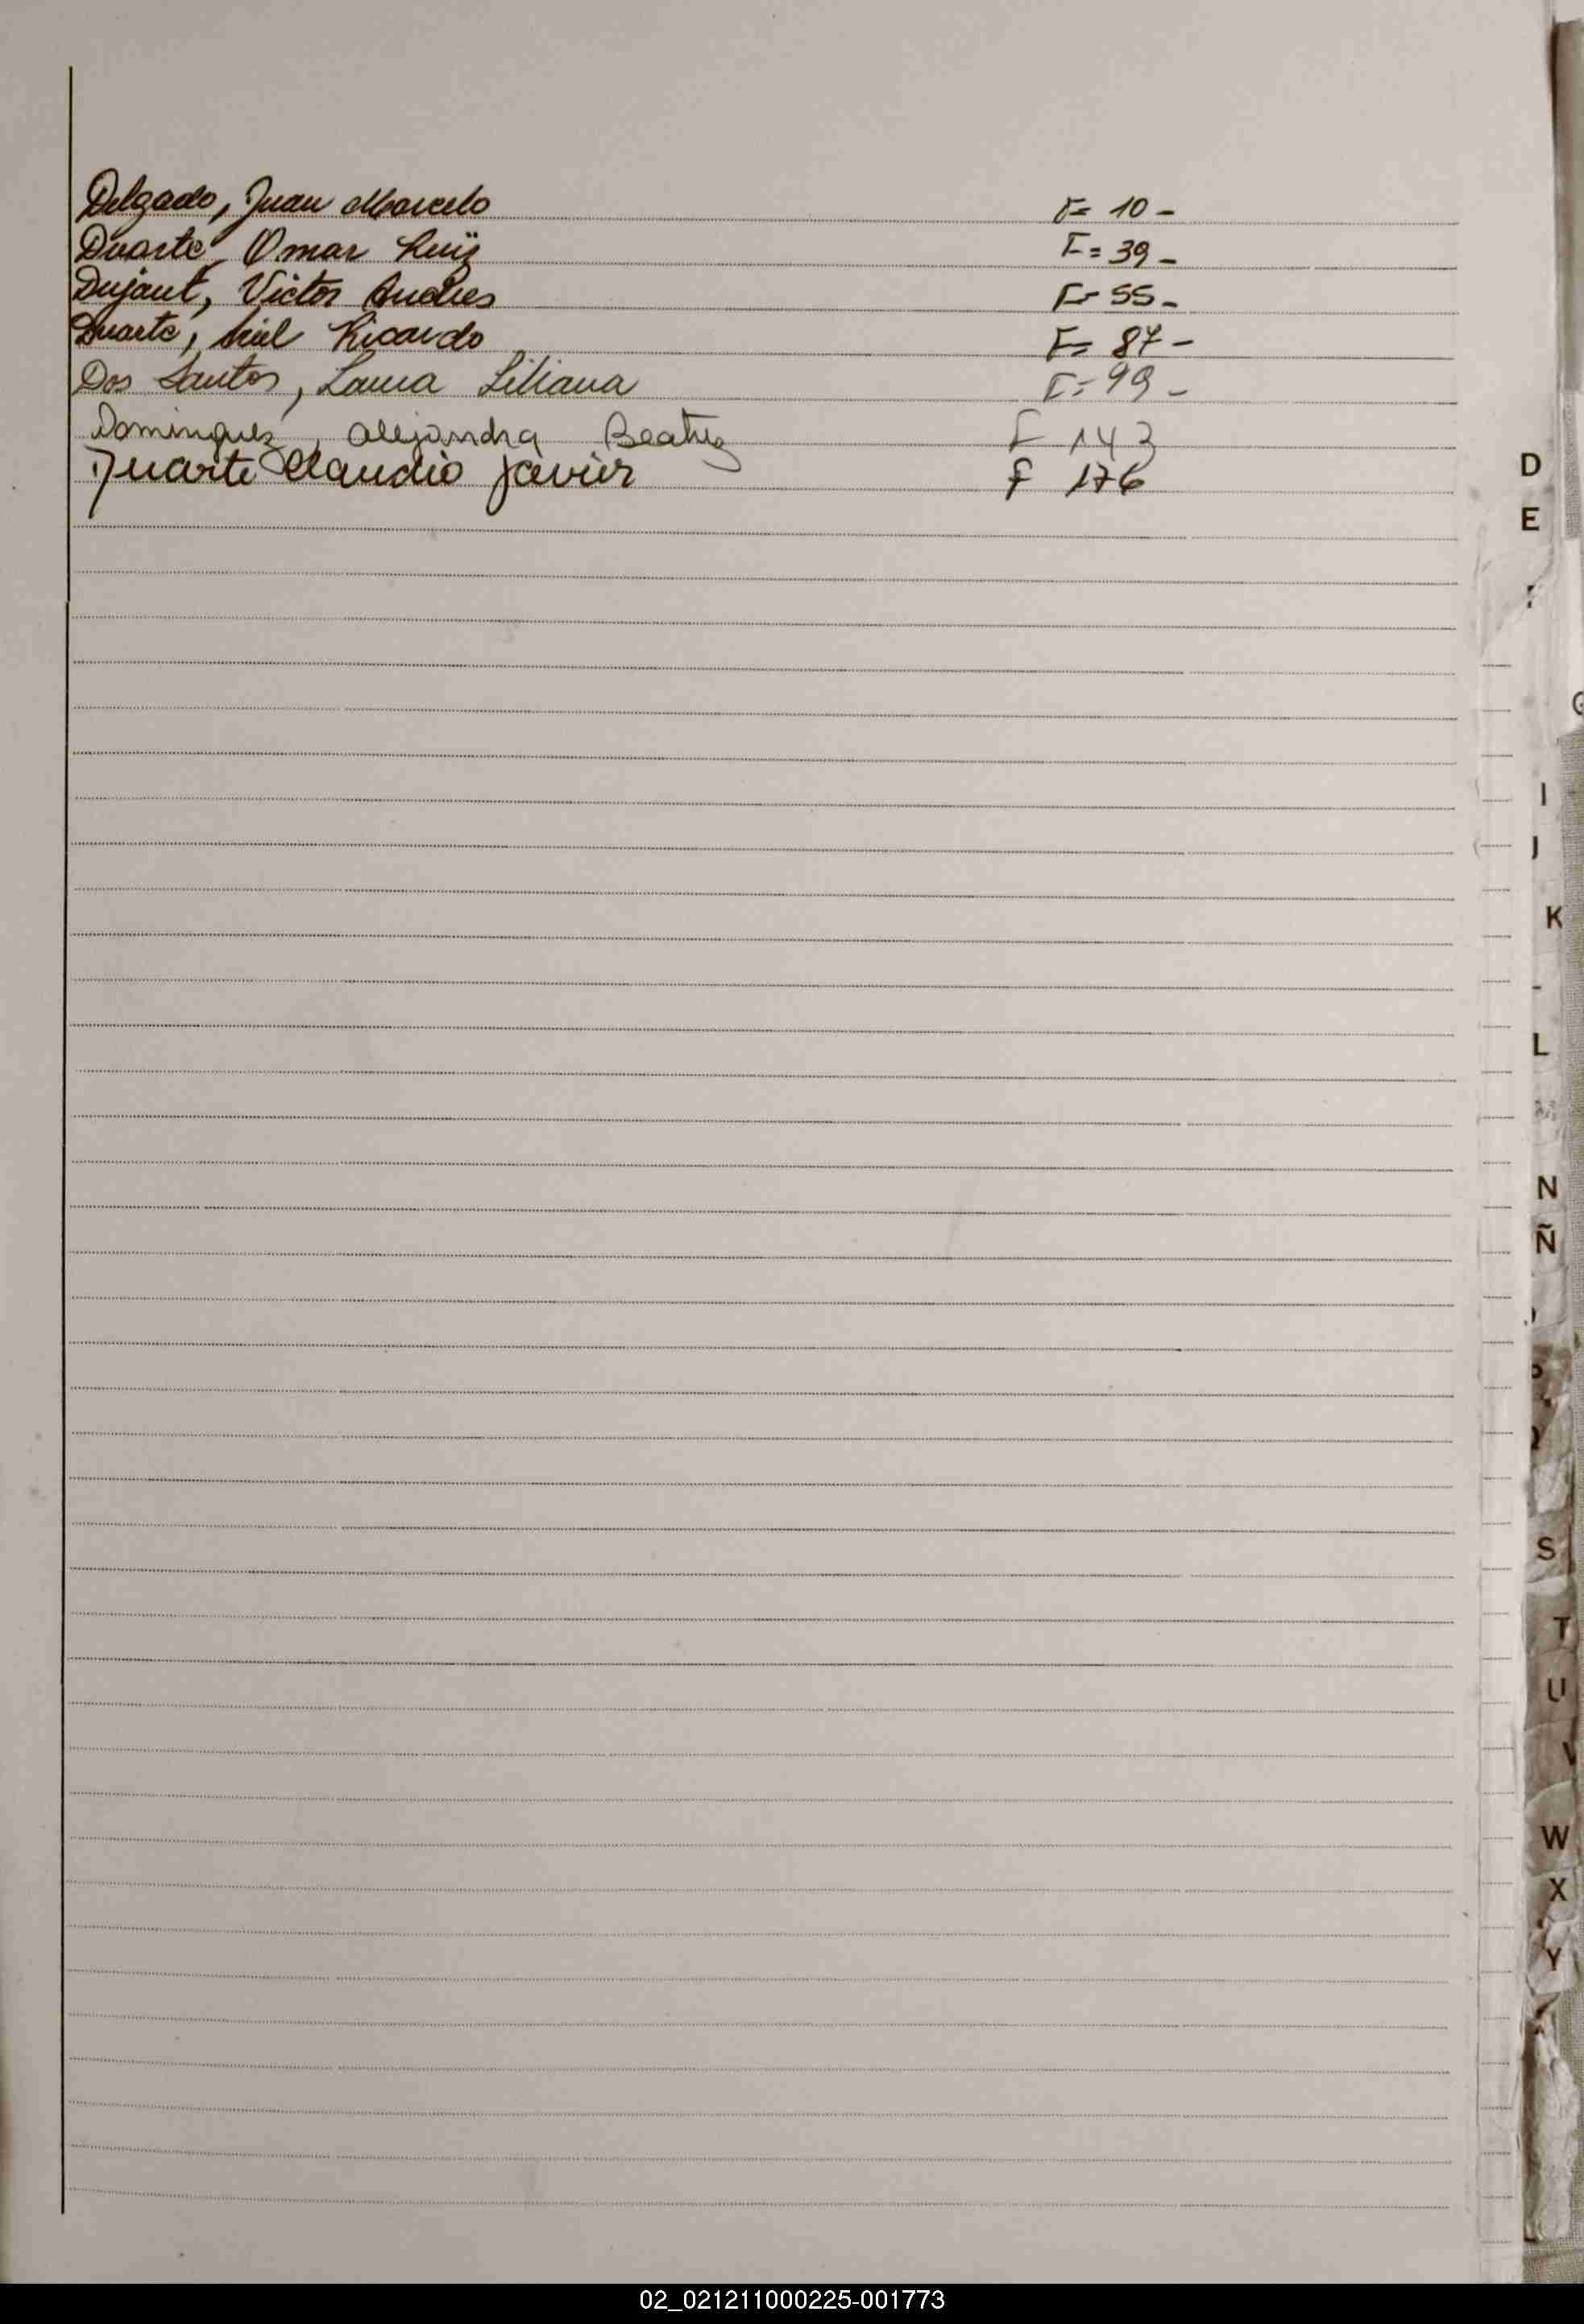 Delgado, Juan Marcelo F= 10 -
Duarte, Omar Luis F= 39 -
Dujaut, Victor Andres F- 55 -
Duarte, Ariel Ricardo F= 87 -
Dos Santos, Laura Liliana F= 99 -
Dominguez, Alejandra Beatriz F 143
Duarte Claudio Javier F 176
D
E
I
J
K
L
N
Ñ
S
T
U
V
W
X
Y
02_021211000225-001773